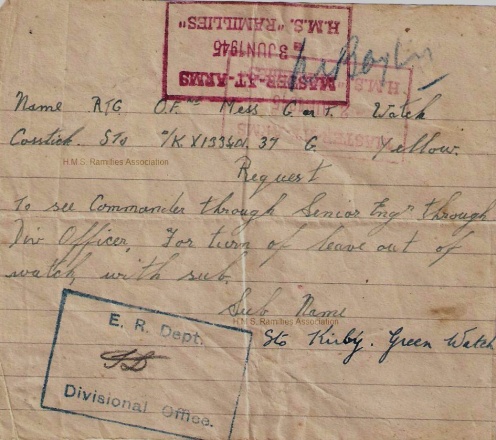 MASTER-AT-ARMS
3 JUN 1945
H.M.S. "RAMILLIES"
Name RTG O.Fᶠ Nº Mess G or T. Watch
Costick. Sto D/KX133401. 37 G Yellow.
H.M.S. Ramillies Association
Request
To see Commander through Senior Engʳ through
Div Officer, For turn of leave out of
watch, with sub.
Sub Name
H.M.S. Ramillies Association
Sto Kirby. Green Watch
E. R. Dept.
Divisional Office.